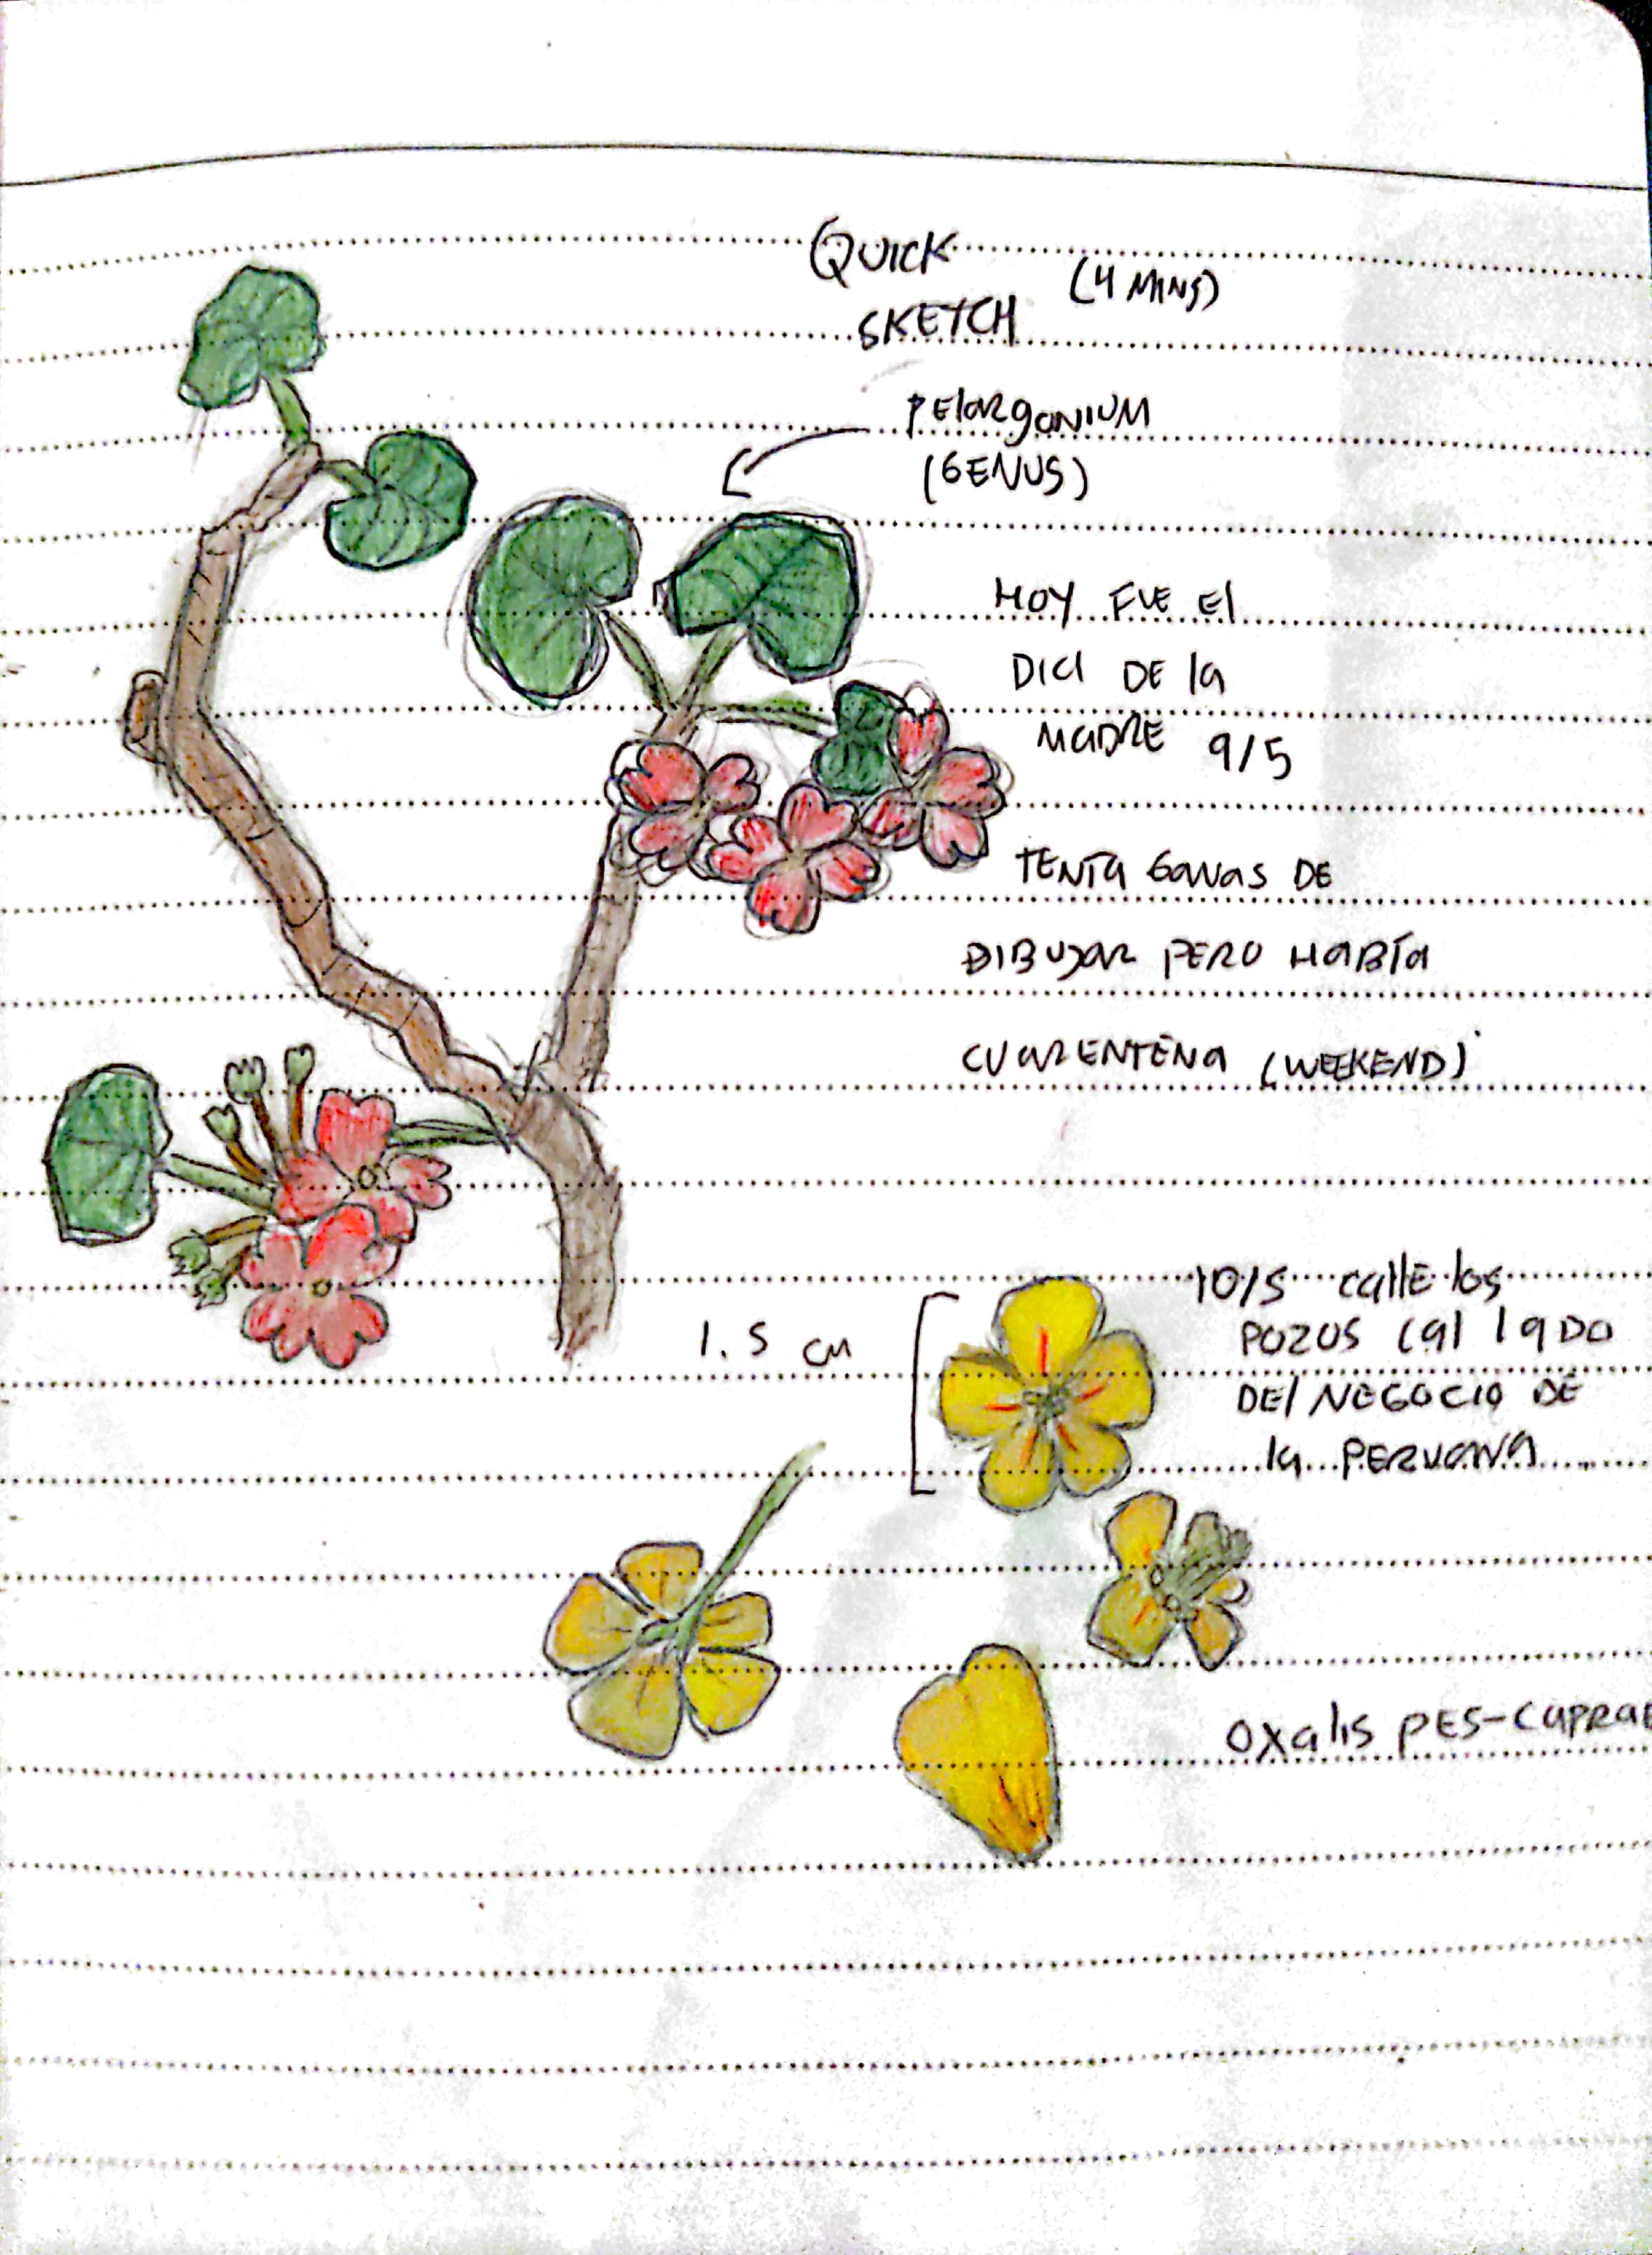 QUICK (4 MINS)
SKETCH
PElARgONIUM
(GENUS)
HOY FUE El
DIa DE la
MaDRE 9/5
TENÍa GaNas DE
DIBUJAR PERO HaBÍa
CUaRENTENa (WEEKEND)
10/5 CallE los
POZOS (al laDO
DEl NEGOCIO DE
la PERUaNa
1.5 CM
Oxalis PES-CaPRaE